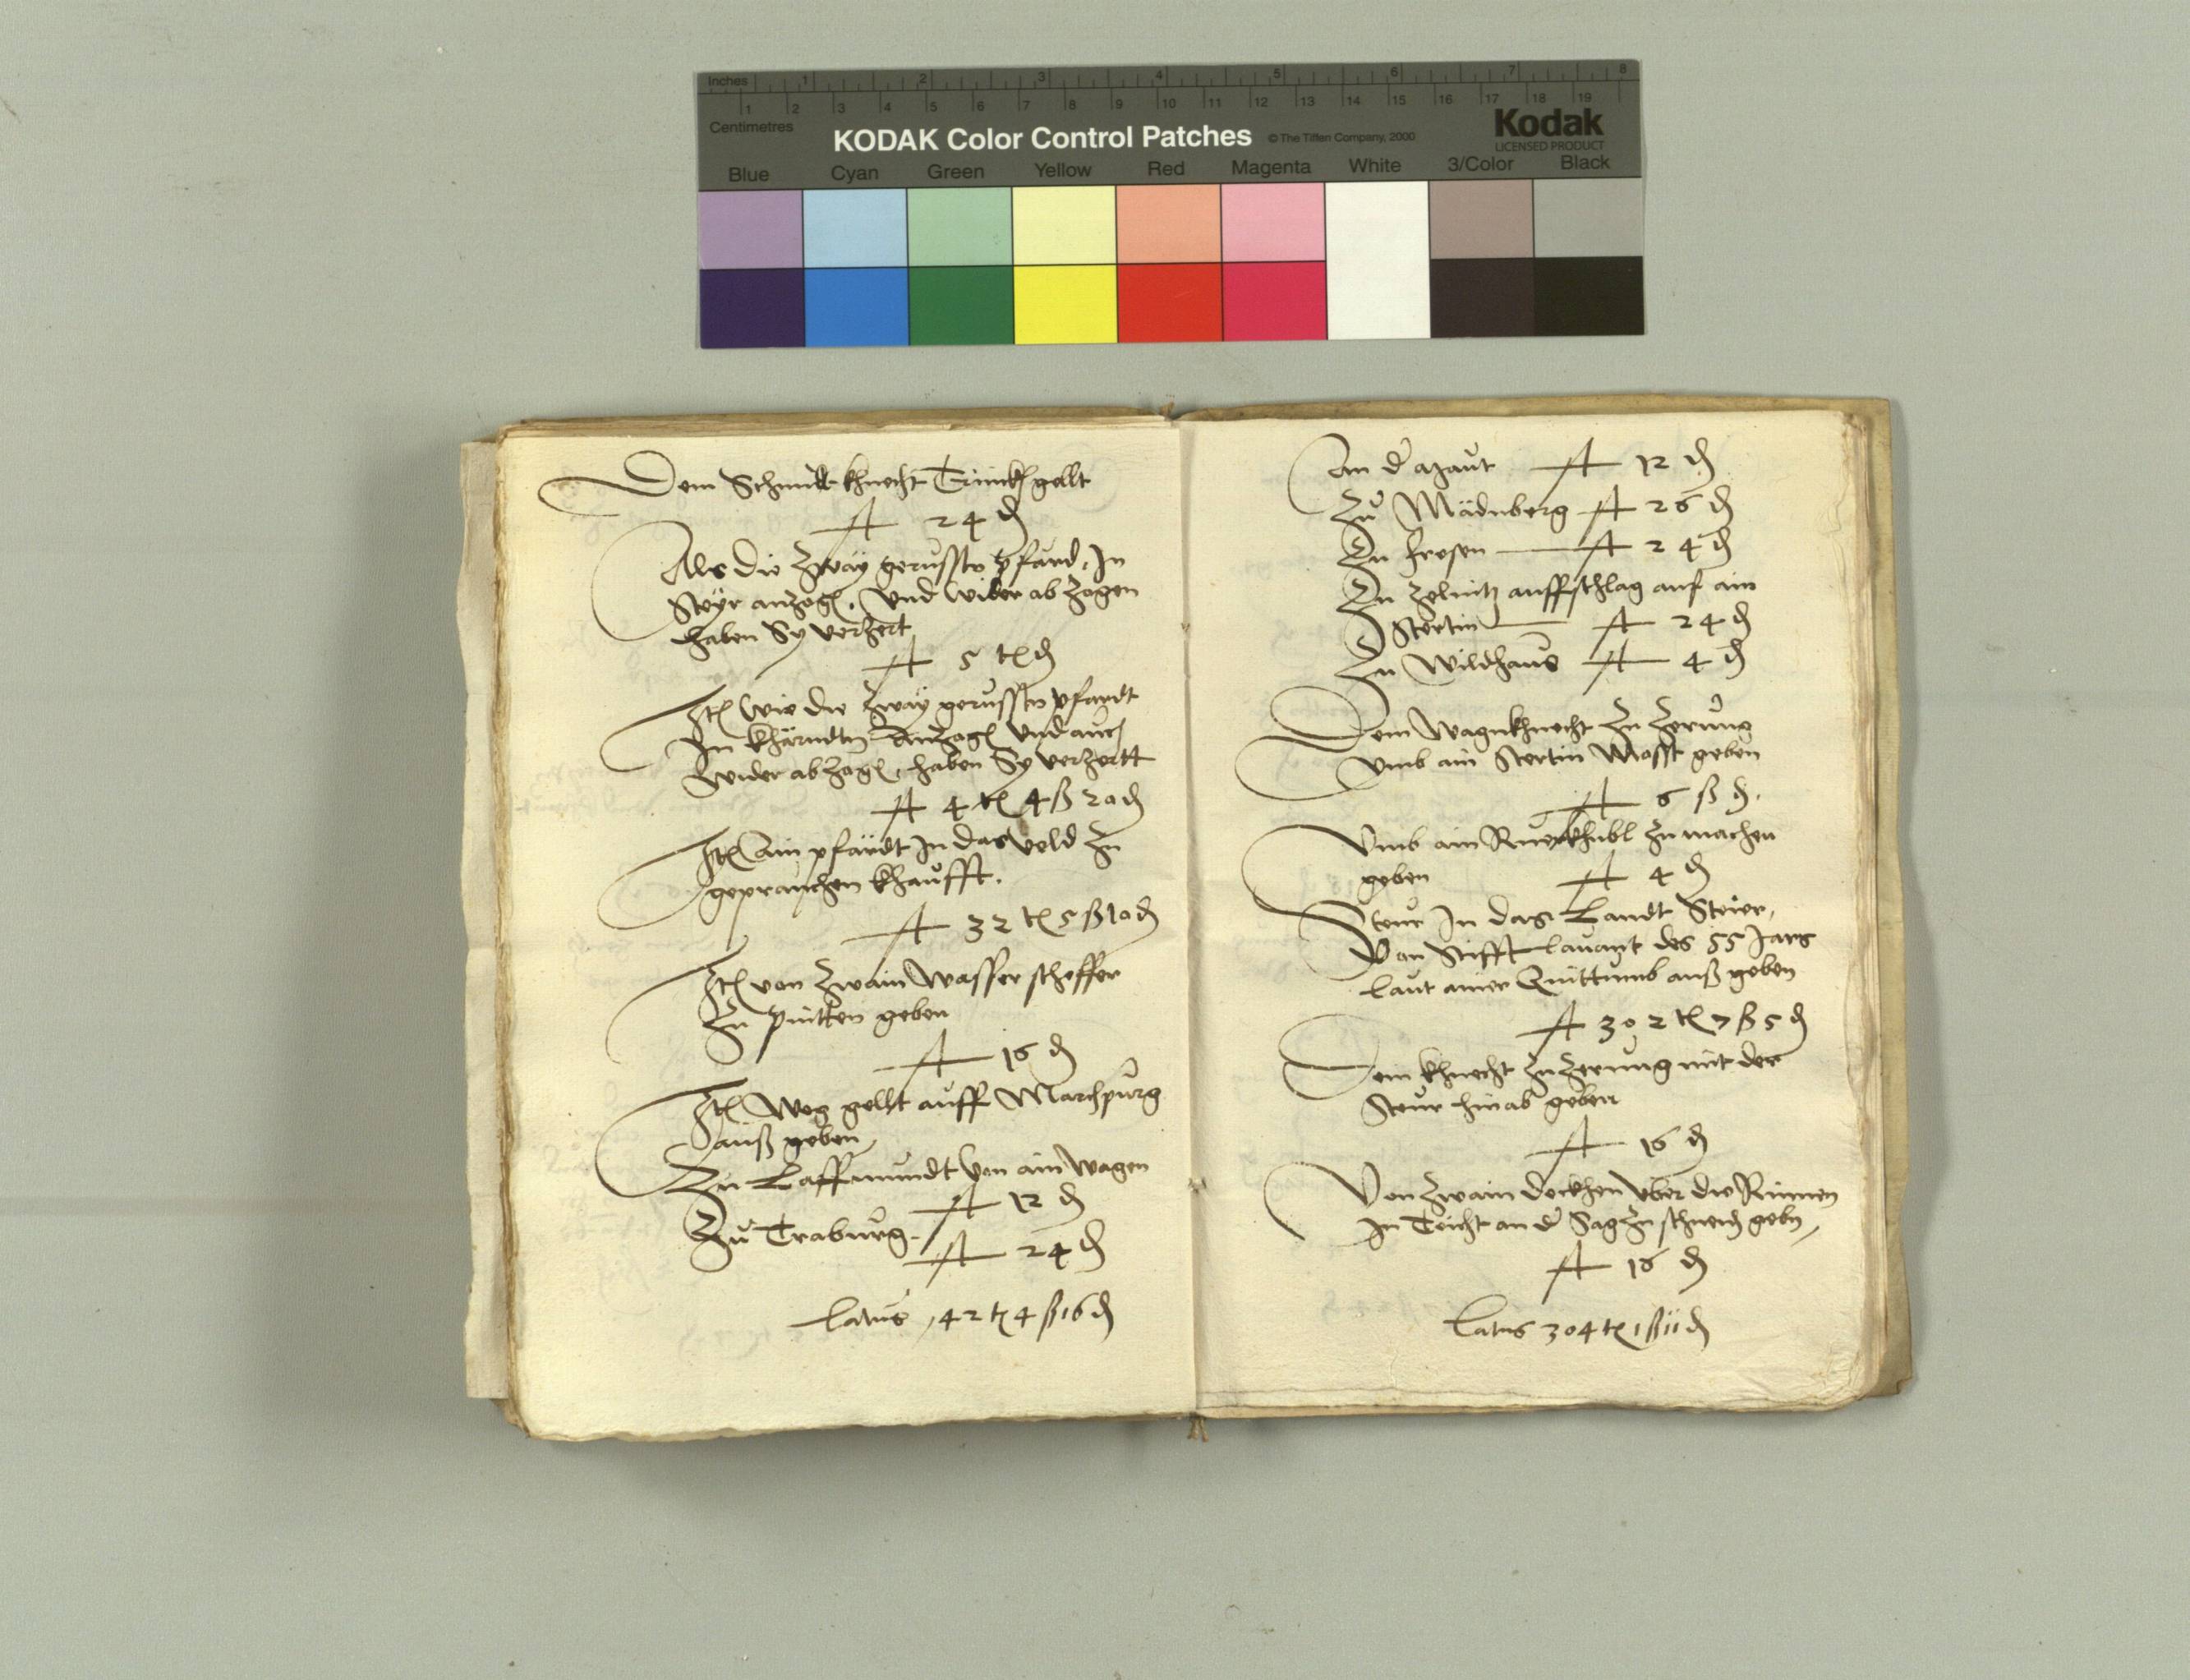 Inches 1 2 3 4 5 6 7 8
1 2 3 4 5 6 7 8 9 10 11 12 13 14 15 16 17 18 19
Centimetres
KODAK Color Control Patches © The Tiffen Company, 2000 Kodak
LICENSED PRODUCT
Blue Cyan Green Yellow Red Magenta White 3/Color Black
Dem Schmidt khnecht Trinckhgellt
A 24 ₰
Als die zway gerussto pfard, In
Steyr anzogn, vnd wider abzogen
haben Sy verzert
A 5 tl ₰
Itn wie die zway gerusstn pfardt
In khärndtn anzogn vnd auch
wider abzogn, haben Sy verzertt
A 4 tl 4 ß 20 ₰
Itn ain pfärdt In das veld zu
geprauchen khaufft.
A 32 tl 5 ß 10 ₰
Itn von zwain wasser scheffer
zu pintten geben
A 16 ₰
Itn Weg gellt auff Marchpurg
auß geben,
Zu Laffmundt von ain wagen
A 12 ₰
Zu Traburg.
A 24 ₰
Latus, 42 tl 4 ß 16 ₰
An d'
A 12 ₰
Zu Mädnberg A 26 ₰
Zu fresen A 24 ₰
Zu Zelnitz auffschlag auf ain
Stertin A 24 ₰
Zu Wildhaus A 4 ₰
Dem Wagnkhnecht zu Zerung
vmb ain Stertin Mosst geben
A 6 ß ₰.
Vmb ain Ruerkhübl zu machen
geben A 4 ₰
Steur In das Landt Steier,
Von Stifft Lauant des 55 Jars
laut ainer Quittumb auß geben
A 302 tl 7 ß 5 ₰
Dem khnecht zu Zerung mit der
Steur hinab geben
A 16 ₰
Von zwain deckhen vber die Rinnen
In Teicht an d' Sag zu schneidn gebn,
A 16 ₰
Latus 304 tl 1 ß 11 ₰